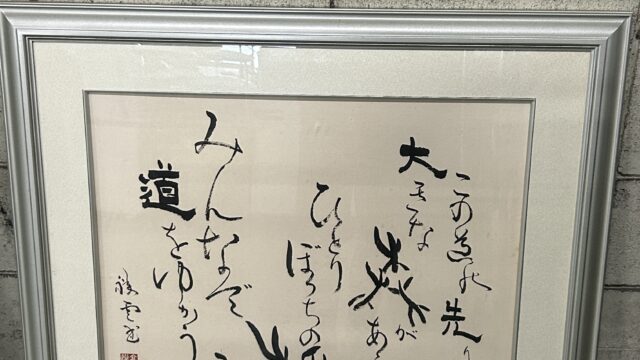 この道の先
大きな
森があ
ひとり
ぼっちの
みんなで
道をゆかう